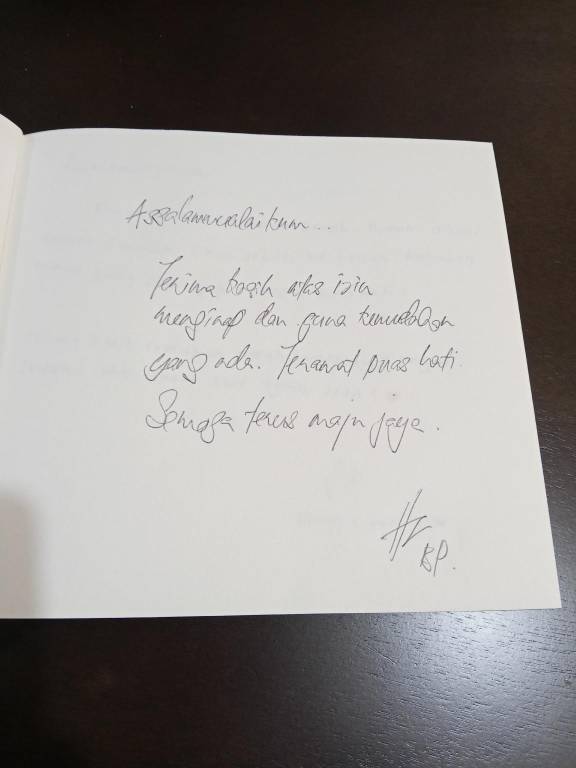 Assalamualaikum...
Terima kasih atas izin
menginap dan guna kemudahan
yang ada. Teramat puas hati.
Semoga terus maju jaya.
BP.